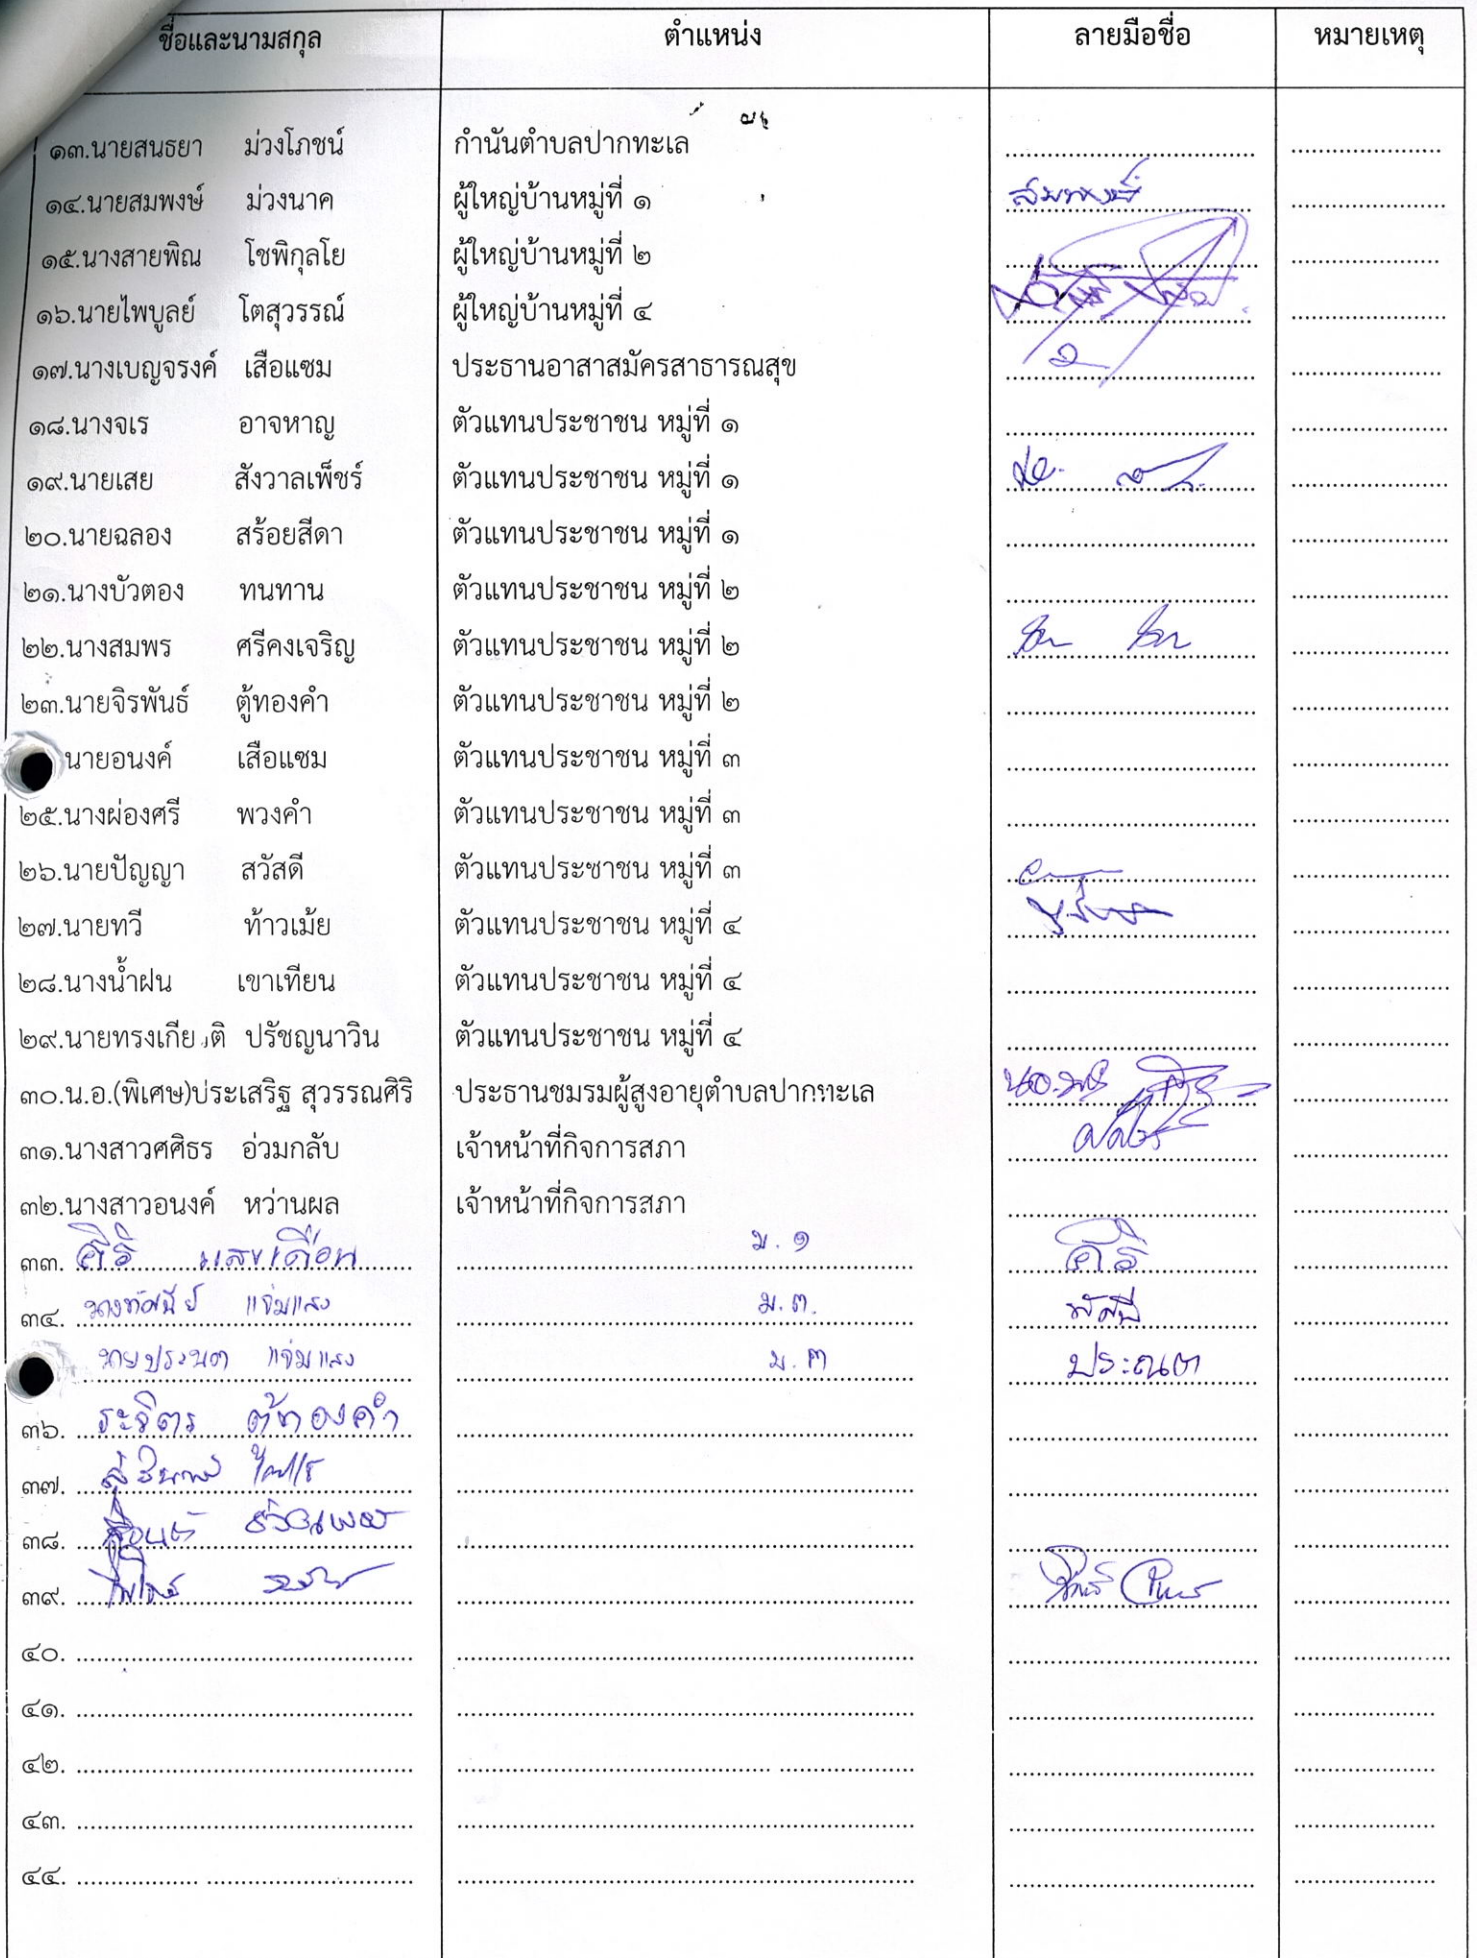 ชื่อและนามสกุล ตำแหน่ง ลายมือชื่อ หมายเหตุ
๑๓.นายสนธยา ม่วงโภชน์ กำนันตำบลปากทะเล
๑๔.นายสมพงษ์ ม่วงนาค ผู้ใหญ่บ้านหมู่ที่ ๑ สมพงษ์
๑๕.นางสายพิณ โชพิกุลโย ผู้ใหญ่บ้านหมู่ที่ ๒
๑๖.นายไพบูลย์ โตสุวรรณ์ ผู้ใหญ่บ้านหมู่ที่ ๔
๑๗.นางเบญจรงค์ เสือแซม ประธานอาสาสมัครสาธารณสุข
๑๘.นางจเร อาจหาญ ตัวแทนประชาชน หมู่ที่ ๑
๑๙.นายเสย สังวาลเพ็ชร์ ตัวแทนประชาชน หมู่ที่ ๑
๒๐.นายฉลอง สร้อยสีดา ตัวแทนประชาชน หมู่ที่ ๑
๒๑.นางบัวตอง ทนทาน ตัวแทนประชาชน หมู่ที่ ๒
๒๒.นางสมพร ศรีคงเจริญ ตัวแทนประชาชน หมู่ที่ ๒
๒๓.นายจิรพันธ์ ตู้ทองคำ ตัวแทนประชาชน หมู่ที่ ๒
นายอนงค์ เสือแซม ตัวแทนประชาชน หมู่ที่ ๓
๒๕.นางผ่องศรี พวงคำ ตัวแทนประชาชน หมู่ที่ ๓
๒๖.นายปัญญา สวัสดี ตัวแทนประชาชน หมู่ที่ ๓
๒๗.นายทวี ท้าวเม้ย ตัวแทนประชาชน หมู่ที่ ๔
๒๘.นางน้ำฝน เขาเทียน ตัวแทนประชาชน หมู่ที่ ๔
๒๙.นายทรงเกียรติ ปรัชญนาวิน ตัวแทนประชาชน หมู่ที่ ๔
๓๐.น.อ.(พิเศษ)ประเสริฐ สุวรรณศิริ ประธานชมรมผู้สูงอายุตำบลปากทะเล
๓๑.นางสาวศศิธร อ่วมกลับ เจ้าหน้าที่กิจการสภา
๓๒.นางสาวอนงค์ หว่านผล เจ้าหน้าที่กิจการสภา
๓๓. ศิริ แสงเดือน ม.๑ ศิริ
๓๔. นางทัศนีย์ แจ่มแสง ม.๓. ทัศนี
นายประนต แจ่มแสง ม.๓ ประณต
๓๖. ระจิตร ตู้ทองคำ
๓๗.
๓๘.
๓๙.
๔๐.
๔๑.
๔๒.
๔๓.
๔๔.